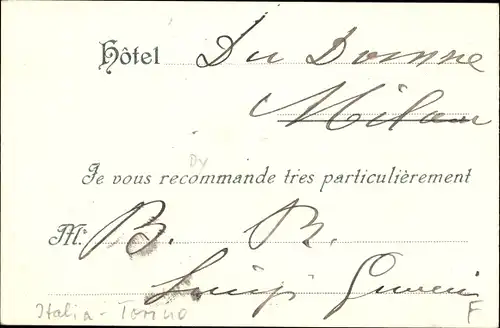 Hôtel Du Domme
Milan
Dy
Je vous recommande tres particulièrement
M.r B. R.
Luigi
Italia - Torino F